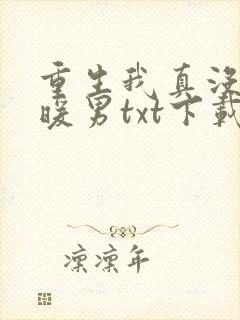 重生我真没
暖男txt下载
凛凛年